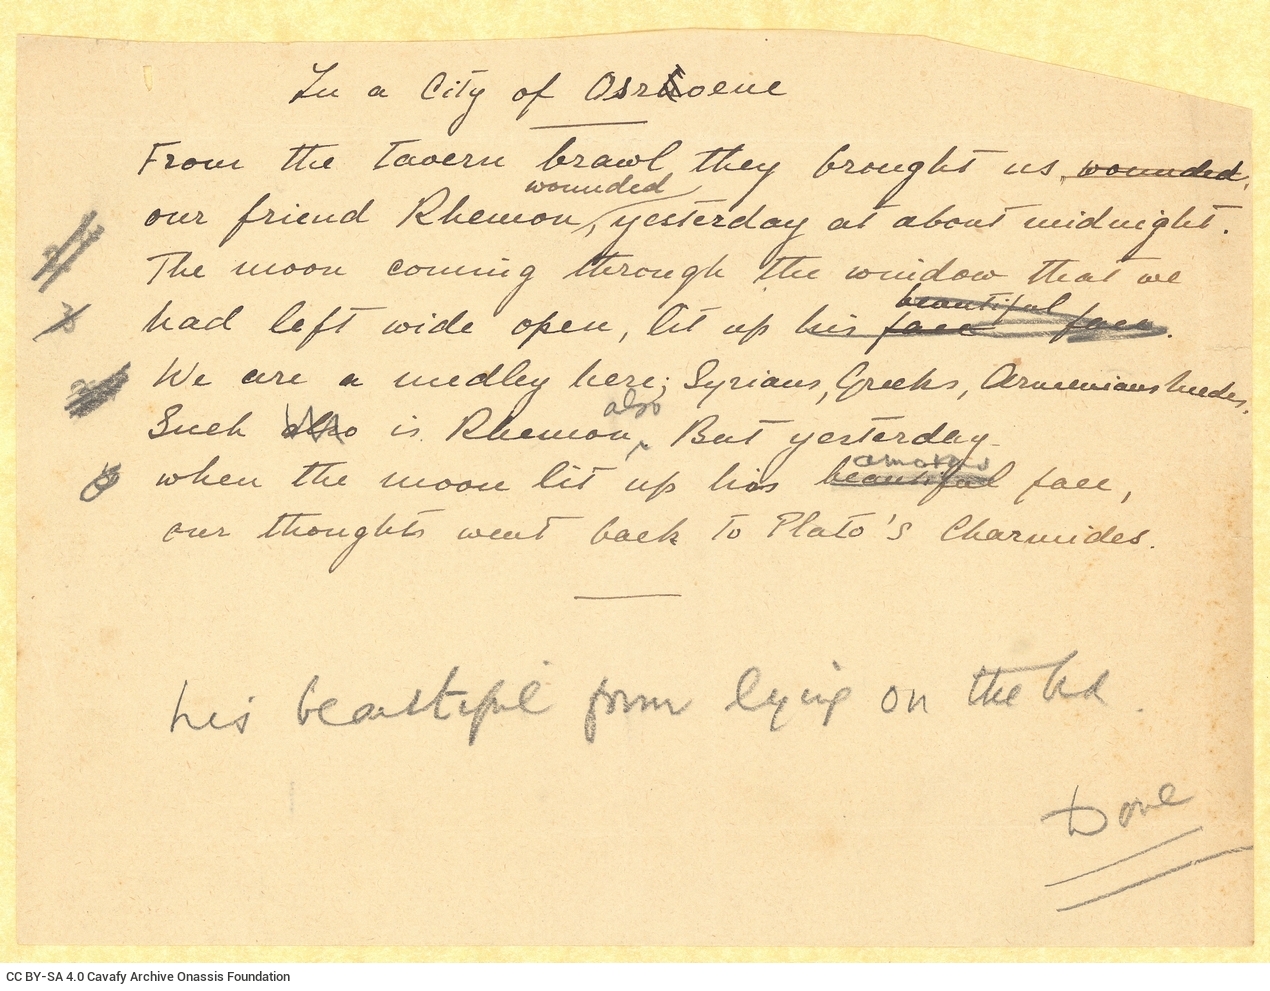 In a City of Osrhoene
From the tavern brawl they brought us, wounded,
wounded
our friend Rhemon, yesterday at about midnight.
The moon coming through the window that we
beautiful
had left wide open, lit up his face face.
We are a medley here; Syrians, Greeks, Armenians, Medes.
also
Such also is Rhemon. But yesterday
amorous
when the moon lit up his beautiful face,
our thoughts went back to Plato's Charmides.
his beautiful form lying on the bed.
Done
CC BY-SA 4.0 Cavafy Archive Onassis Foundation